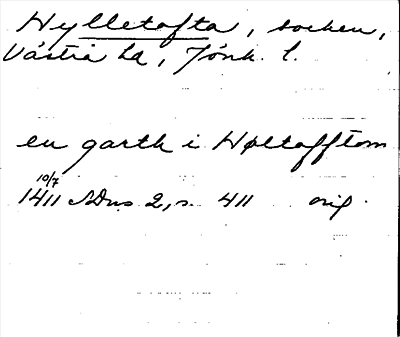 Hylletofta, socken,
Västra hd, Jönk. l.
en garth i Høltafftom
10/7
1411 SDns 2, s. 411 orig.